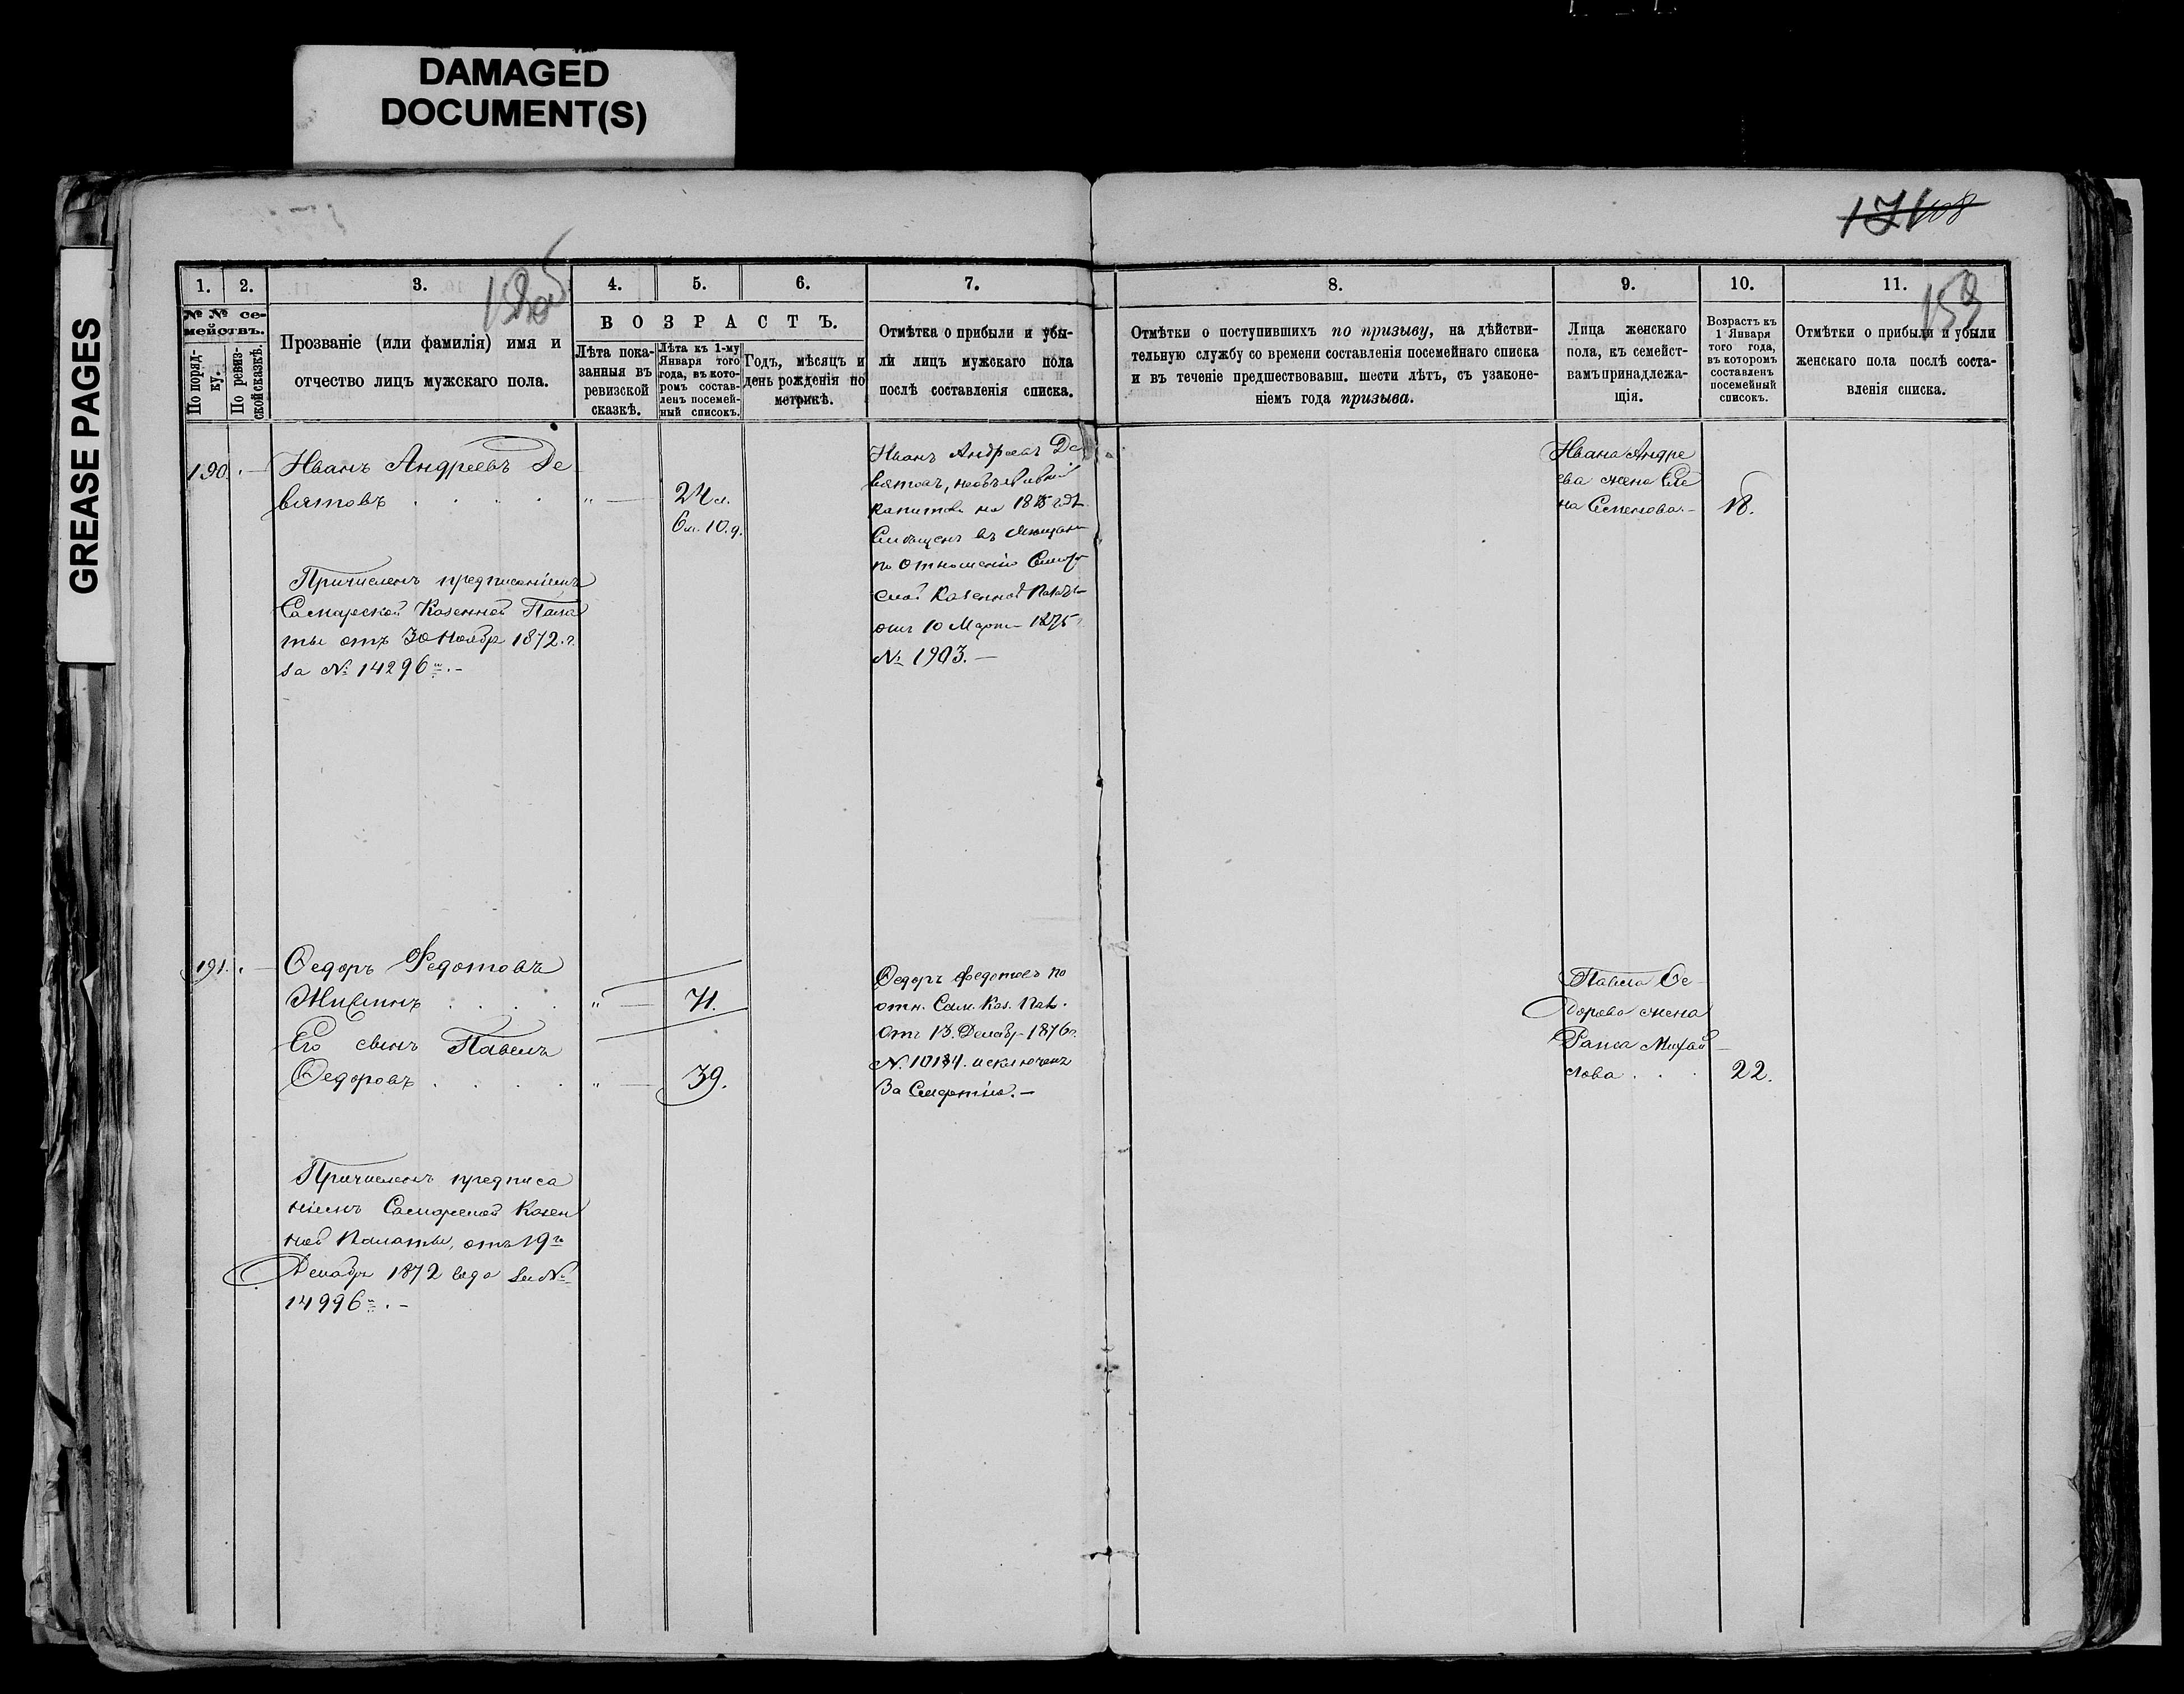 DAMAGED
DOCUMENT(S)
GREASE PAGES
171
108
158
1. 2. 3. 4. 5. 6. 7. 8. 9. 10. 11.
№ № се-
мействъ.
По поряд-
ку.
По ревиз-
ской сказкѣ.
Прозваніе (или фамилія) имя и
отчество лицъ мужскаго пола.
ВОЗРАСТЪ.
Лѣта пока-
занныя въ
ревизской
сказкѣ.
Лѣта къ 1-му
Января того
года, въ кото-
ромъ состав-
ленъ посемей-
ный списокъ.
Годъ, мѣсяцъ и
день рожденія по
метрикѣ.
Отмѣтка о прибыли и убы-
ли лицъ мужскаго пола
послѣ составленія списка.
Отмѣтки о поступившихъ по призыву, на дѣйстви-
тельную службу со времени составленія посемейнаго списка
и въ теченіе предшествовавш. шести лѣтъ, съ узаконе-
ніемъ года призыва.
Лица женскаго
пола, къ семейст-
вамъ принадлежа-
щія.
Возрастъ къ
1 Января
того года,
въ которомъ
составленъ
посемейный
списокъ.
Отмѣтки о прибыли и убыли
женскаго пола послѣ соста-
вленія списка.
190.
Иванъ Андреевъ Де
вятовъ . . . . " 24 л.
6 м. 10. д.
Причисленъ предписаніемъ
Самарской Казенной Пала
ты отъ 30 Ноября 1872. г.
за № 14296м.-
Иванъ Андреевъ Де
вятовъ, необъявивый
капитала на 1875 годъ
Смѣщенъ въ мещане
по отношенію Самар
ской Казенной Палаты
отъ 10 Марта 1875
№ 1903. —
Ивана Андре
ева жена Еле
на Семенова.- 18.
191.
Ѳедоръ Федотовъ
Жилинъ . . . . " 71.
Его сынъ Павелъ
Ѳедоровъ . . . . " 39.
Причисленъ предписа
ніемъ Самарской Казен
ной Палаты, отъ 19го
Декабря 1872 года за №
14996м.-
Ѳедоръ Федотовъ по
отн. Сам. Каз. Пал.
отъ 13. Декабр 1876 г.
№. 10134. исключенъ
За Смертію.—
Павла Ѳе
дорова жена
Раиса Михай
лова . . . 22.